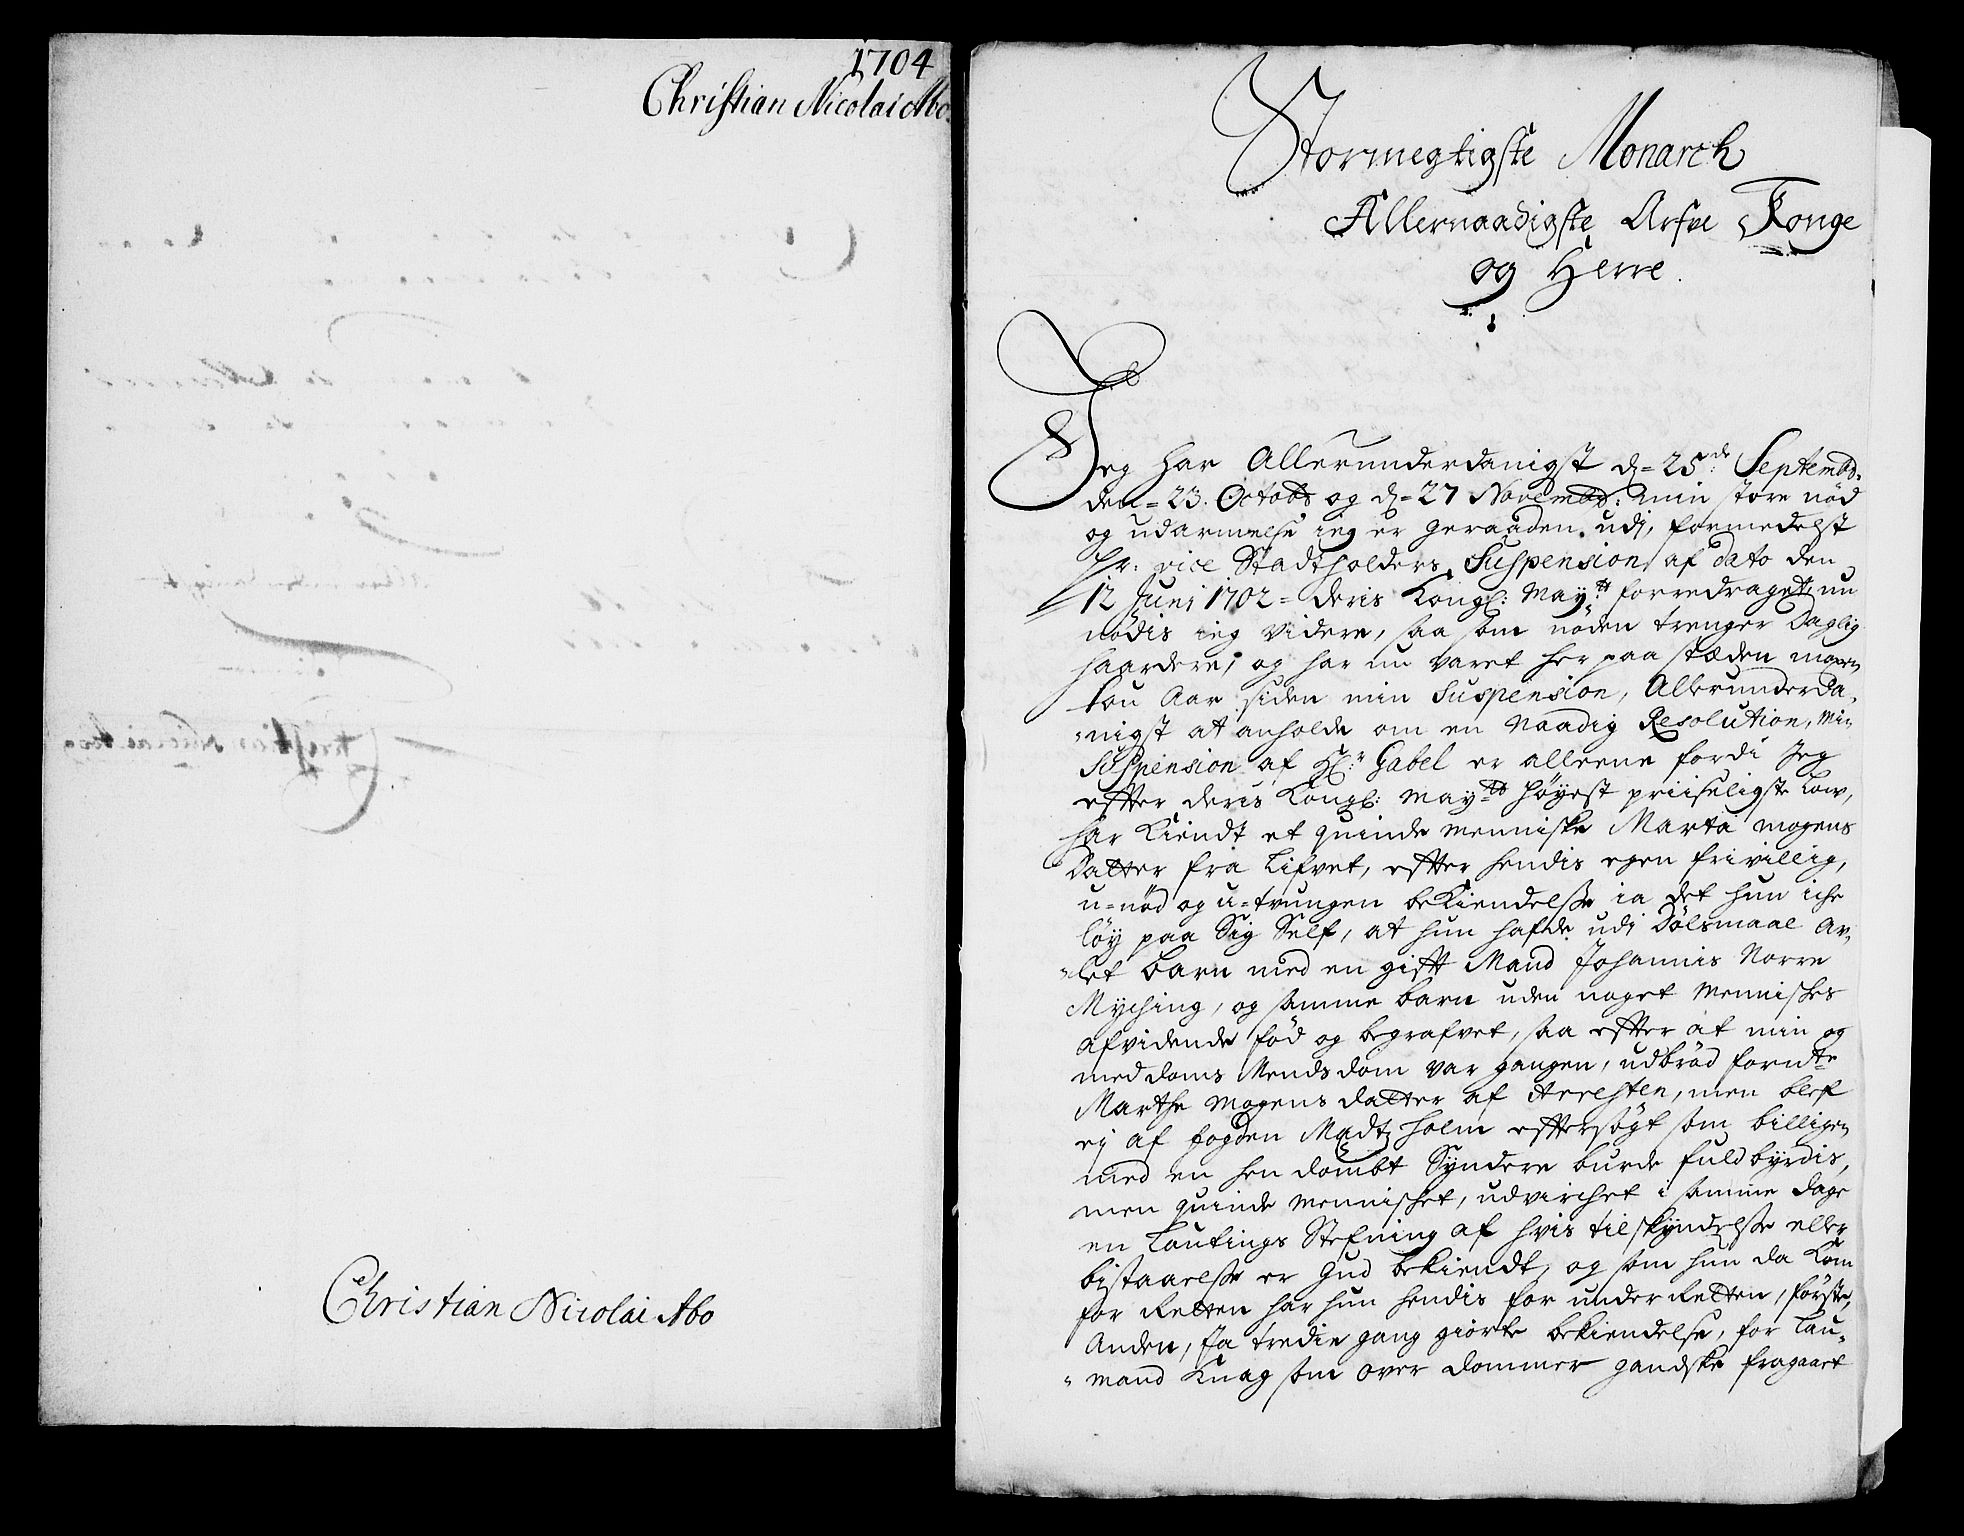 1704
Christian Nicolai Abo
Christian Nicolai Abo
Stormegtigste Monarch
Allernaadigste Arfve Konge
og Herre.
Jeg har Allerunderdanigst d= 25de Septembr:
den= 23. Octobr og d= 27 Novembr: min store nød
og udarmelse ieg er geraaden udj, formedelst
Hr: vice Stadtholders Suspension af dato den
12 Junj 1702= deris Kongl: Mayts forredraget, nu
nødis ieg videre, saa som nøden trenger Daglig
haardere, og har nu varet her paa stæden mopen
tou Aar siden min Suspension, Allerunderda-
=nigst at anholde om en Naadig Resolution, Min
Suspension af Hr: Gabel er alleene fordi Jeg
effter deris Kongl: Mayts høyest priiseligste Low,
har Kiendt et quinde menniske Marta mogens
Datter fra Lifvet, effter hendis egen frivillig,
u=nød og u=tvungen beKiendelsse ia det hun iche
løy paa Sig Self, at hun hafde udj Dølsmaal Av-
=let barn med en gifft Mand Johannis Norre
Myching, og samme barn uden noget Mennisches
afvidende fød og begrafvet, saa effter at min og
med doms Mends dom var gangen, udbrød fornte
Marthe Mogens datter af Arresten, men blef
ej af fogden Madtz Holm effter søgt som billigen
med en hen dømbt Syndere burde fuldbyrdis,
men quinde Mennischet, udvirchet i samme dage
en Lautings Stefning af hvis tilskyndelsse eller
bistaaelsse er Gud bekiendt, og som hun da kom
for Retten har hun hendis for under Retten, første,
Anden, Ja tredie gang giorte bekiendelse, for Lau-
=mand Knag som over dommer gandske fragaaet